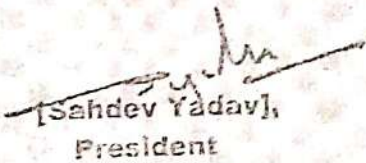 [Sahdev Yadav],
President